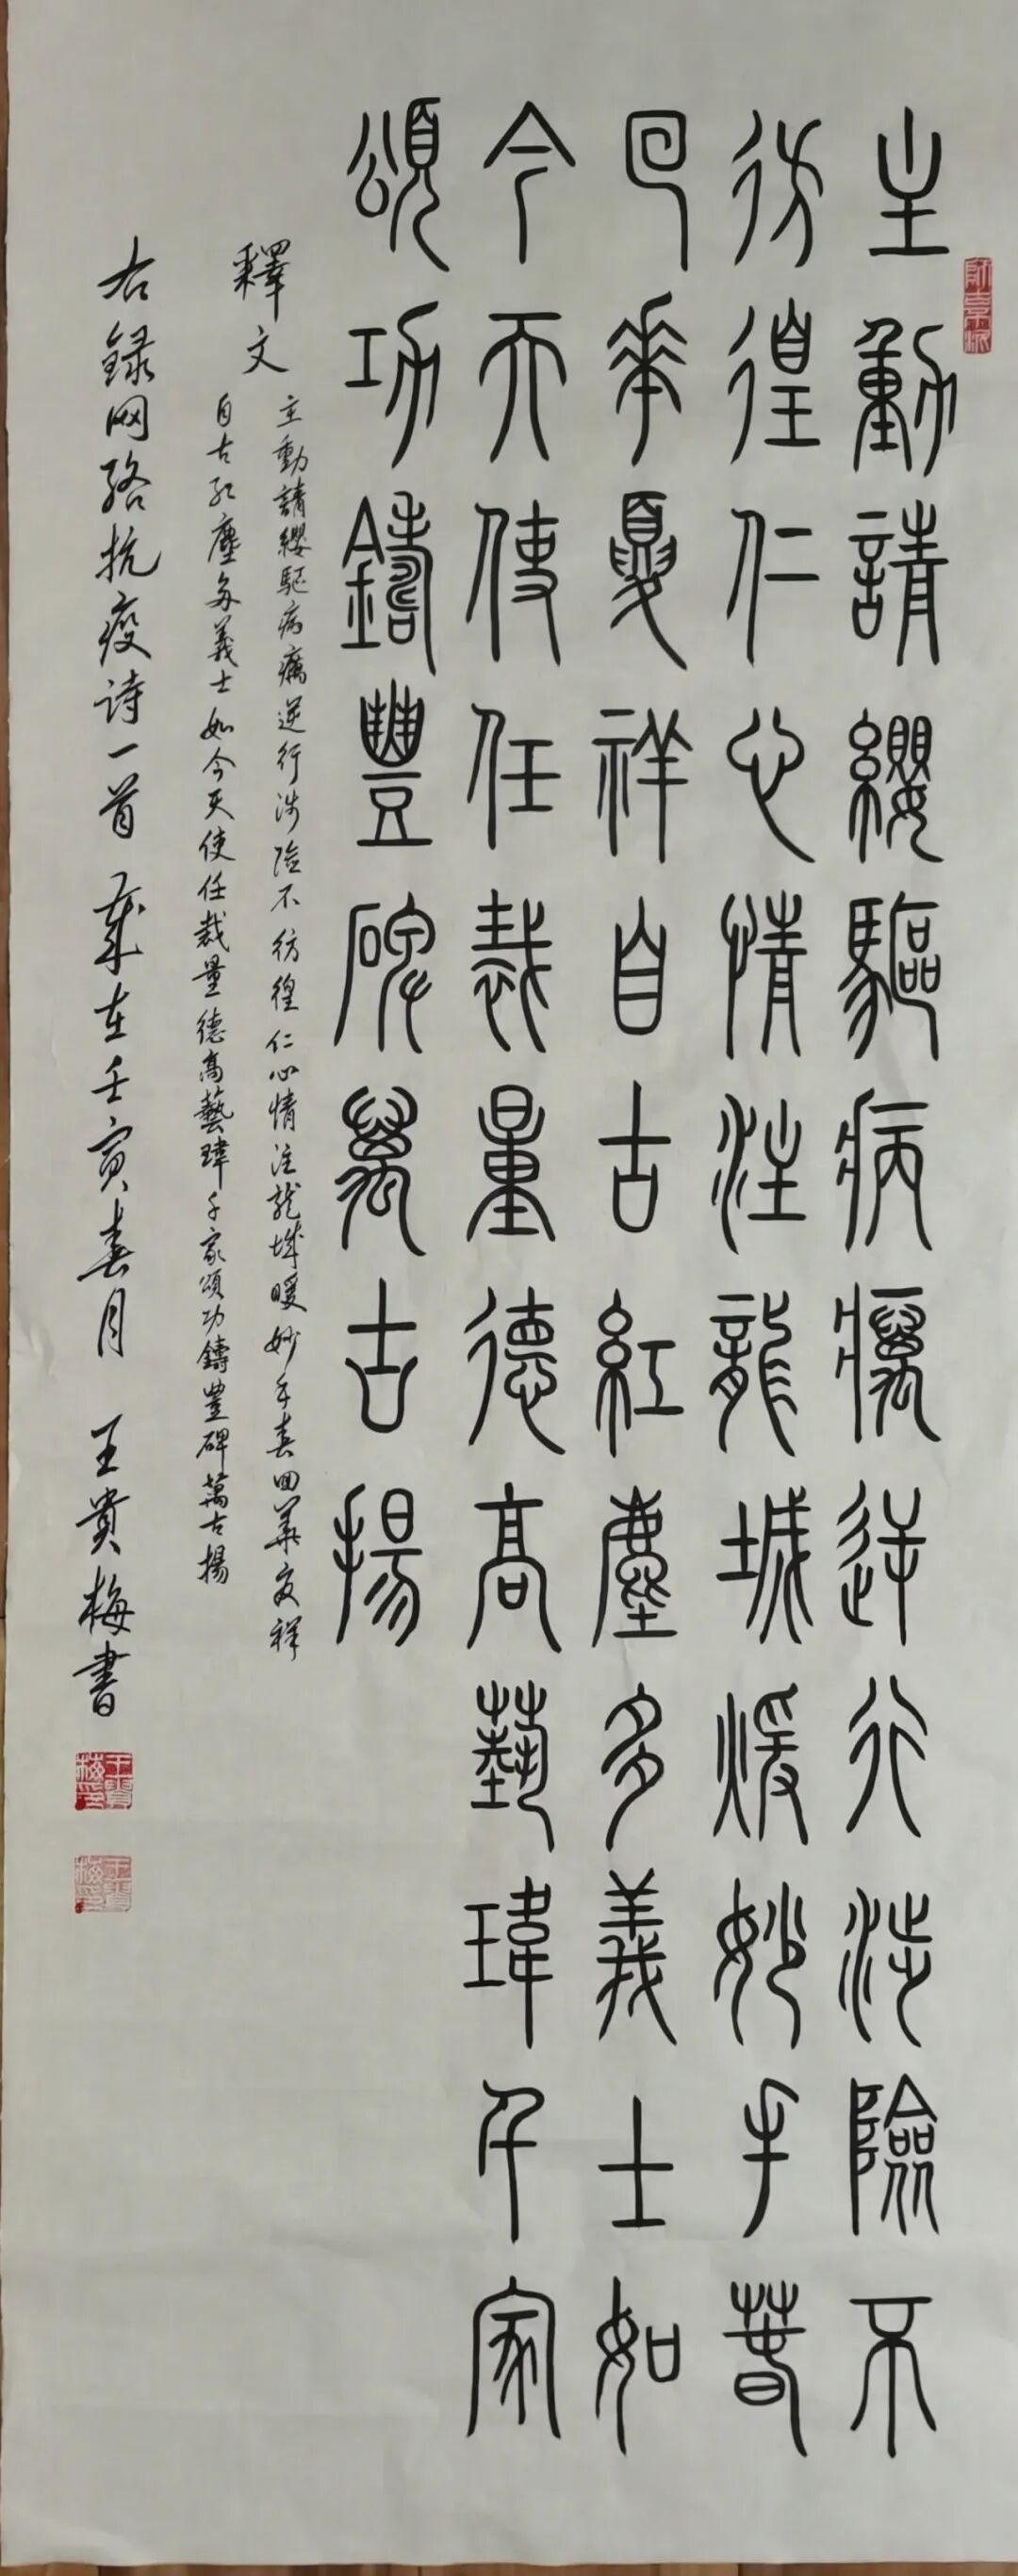 主動請纓驅病癘逆行涉險不
彷徨仁心情注龍城暖妙手春
回華夏祥自古紅塵多義士如
今天使任裁量德高藝瑋千家
頌功鑄豐碑萬古揚
釋文
主動請纓驅病癘逆行涉險不彷徨仁心情注龍城暖妙手春回華夏祥
自古紅塵多義士如今天使任裁量德高藝瑋千家頌功鑄豐碑萬古揚
右録网絡抗疫诗一首 歲在壬寅春月 王貴梅書
王貴梅印
王貴梅印